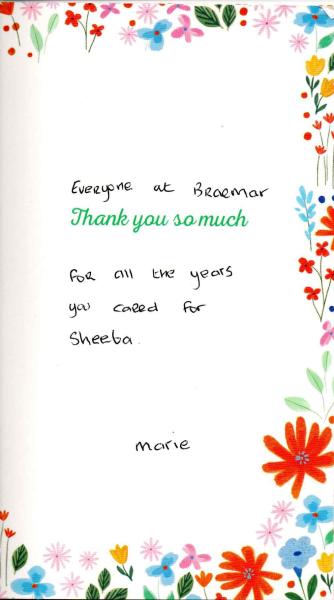 Everyone at Braemar
Thank you so much
For all the years
you cared for
Sheeba.
marie